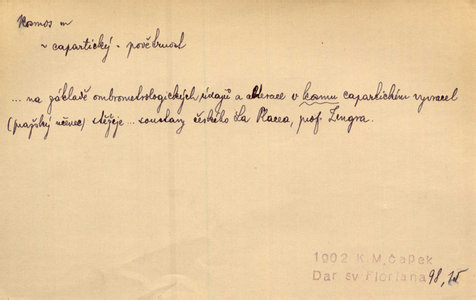 Kosmos m
~ capartický - pověrnost
... na základě ombrometrologických údajů a aberace v kosmu capartickém vyvracel
(pražský učenec) stěžeje ... soustavy českého La Placea, prof. Zengra.
1902 K.M.Čapek
Dar sv Floriana 98,